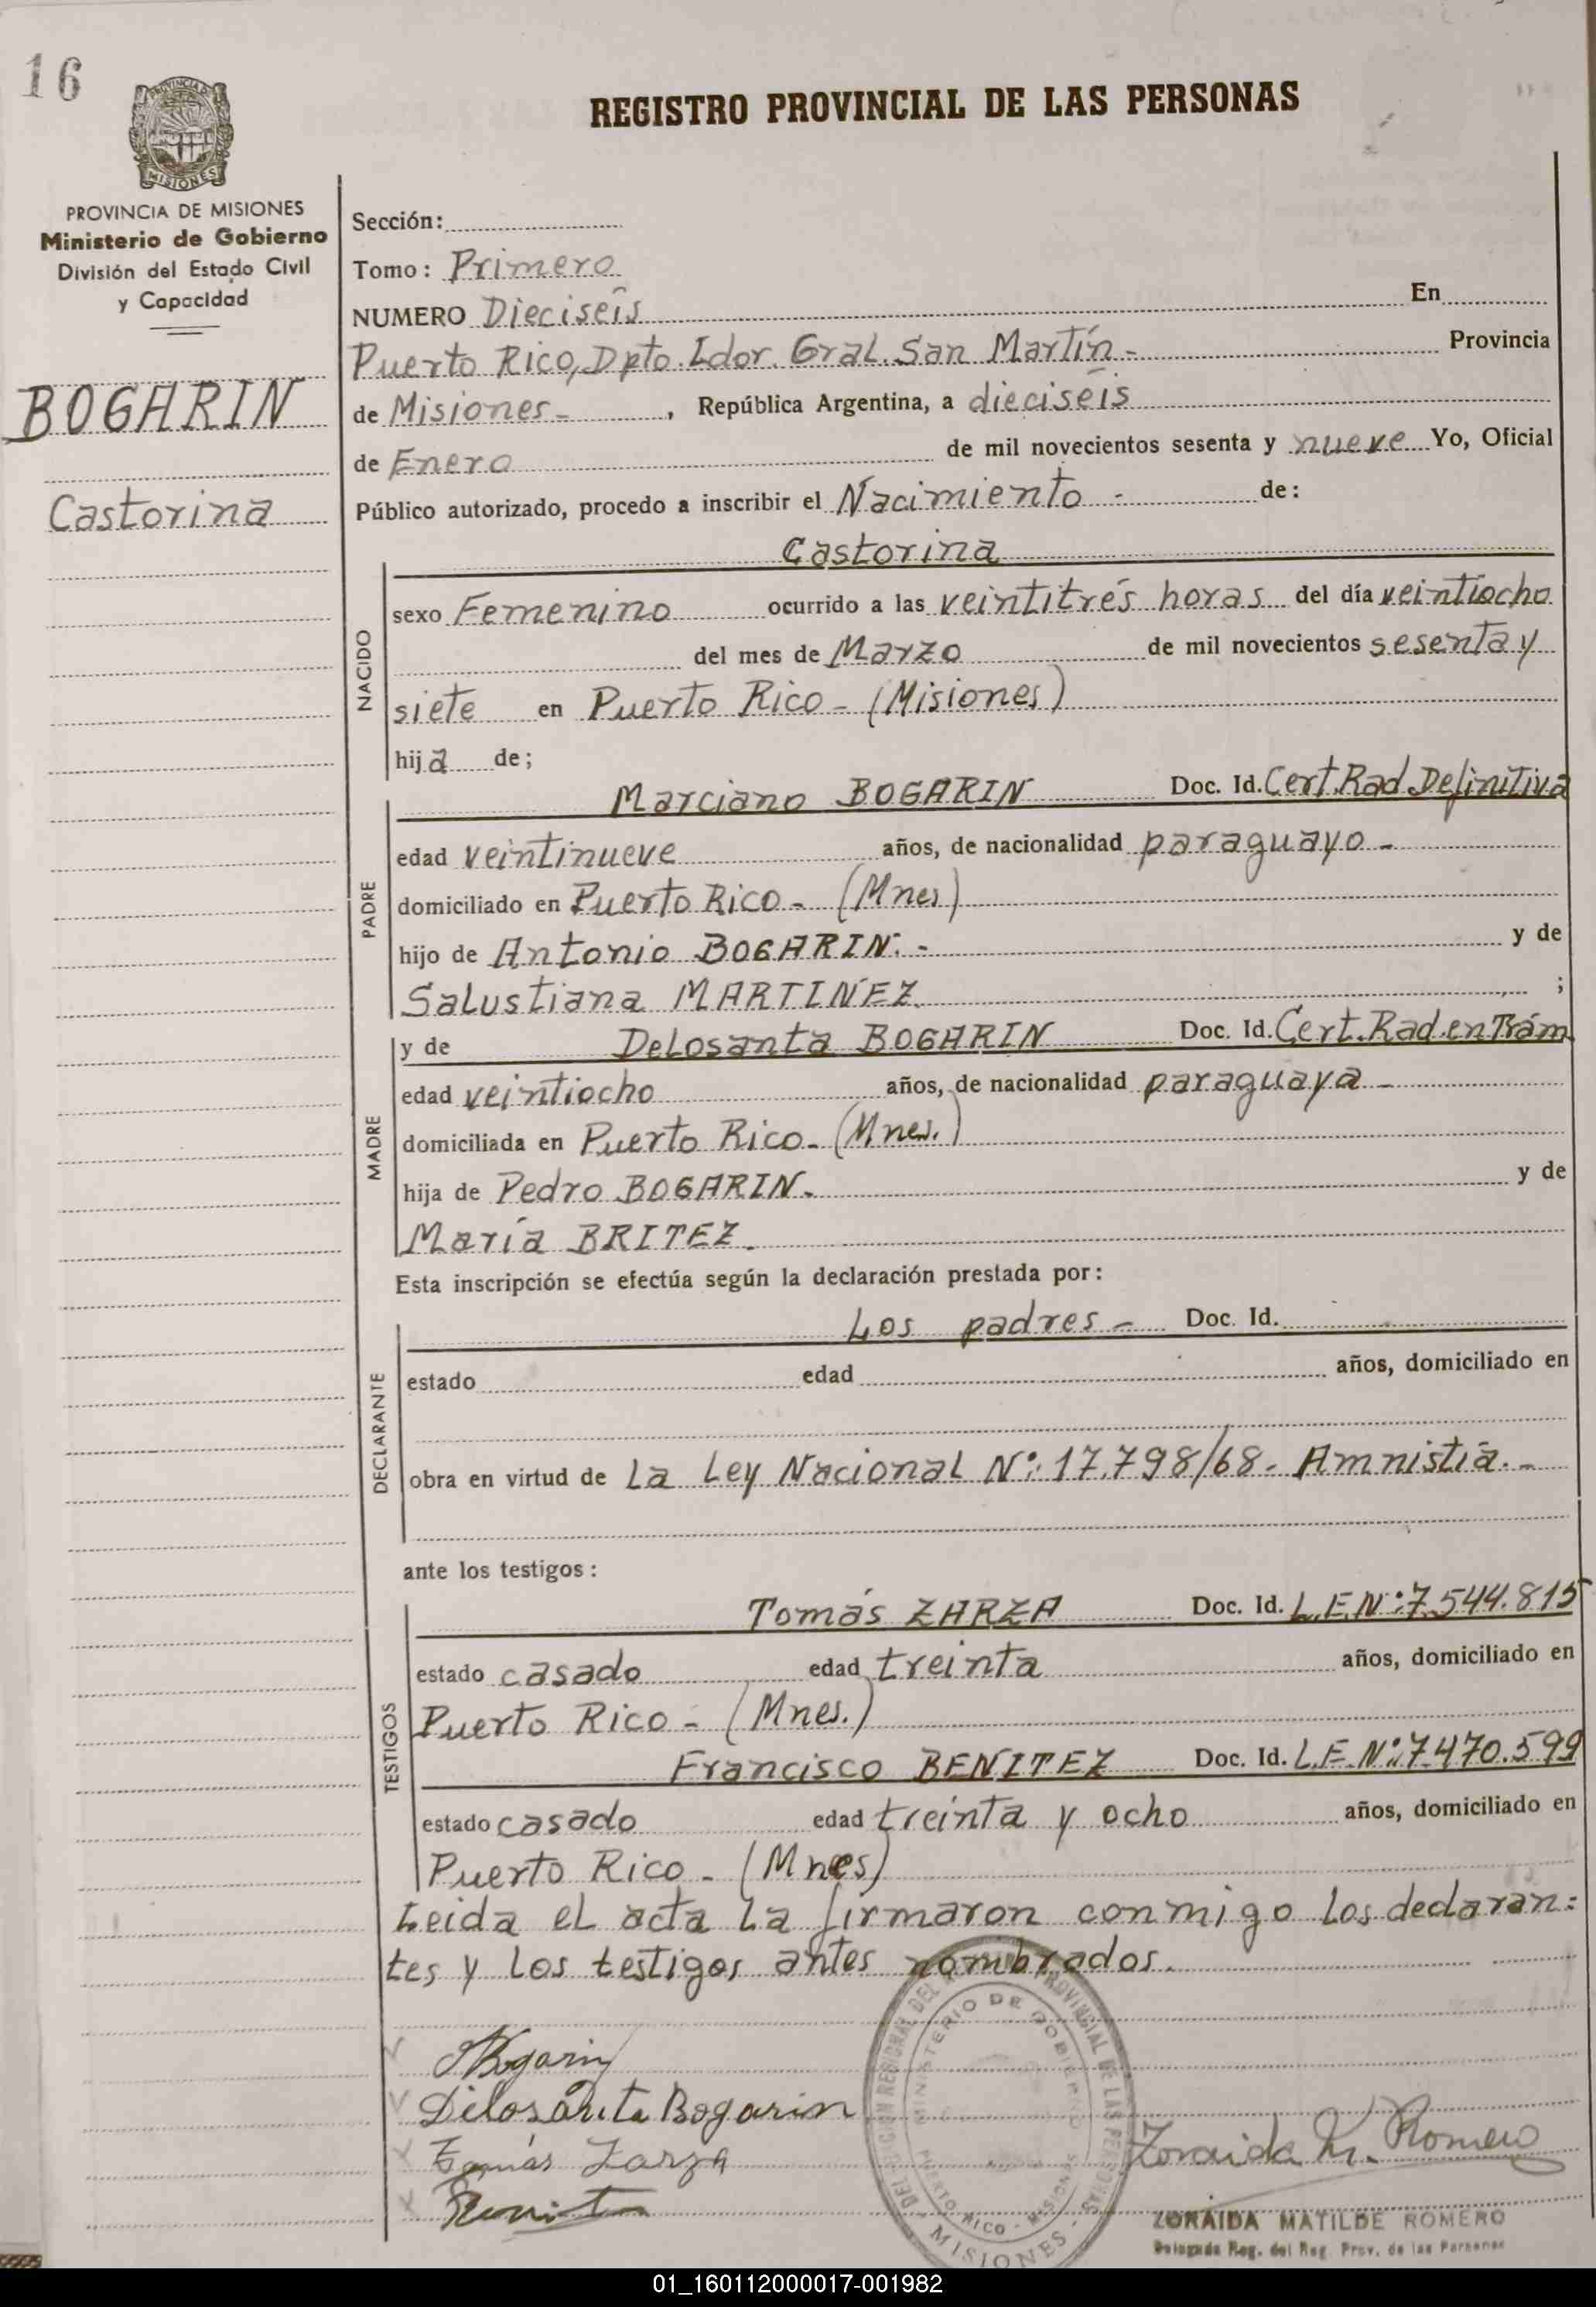 16
REGISTRO PROVINCIAL DE LAS PERSONAS
PROVINCIA DE MISIONES
MISIONES
PROVINCIA DE MISIONES
Ministerio de Gobierno
División del Estado Civil
y Capacidad
BOGARIN
Castorina
Sección:
Tomo: Primero
NUMERO Dieciseis En
Puerto Rico, Dpto. Ldor. Gral. San Martín - Provincia
de Misiones - , República Argentina, a dieciséis
de Enero de mil novecientos sesenta y nueve Yo, Oficial
Público autorizado, procedo a inscribir el Nacimiento - de:
Castorina
NACIDO
sexo Femenino ocurrido a las veintitrés horas del día veintiocho
del mes de Marzo de mil novecientos sesenta y
siete en Puerto Rico - (Misiones)
hija de;
Marciano BOGARIN Doc. Id. Cert. Rad. Definitiva
PADRE
edad veintinueve años, de nacionalidad paraguayo -
domiciliado en Puerto Rico - (Mnes)
hijo de Antonio BOGARIN. - y de
Salustiana MARTINEZ. ;
y de Delosanta BOGARIN Doc. Id. Cert. Rad. en Trám
MADRE
edad veintiocho años, de nacionalidad paraguaya -
domiciliada en Puerto Rico - (Mnes.)
hija de Pedro BOGARIN. y de
María BRITEZ.
Esta inscripción se efectúa según la declaración prestada por:
Los padres - Doc. Id.
DECLARANTE
estado edad años, domiciliado en
obra en virtud de La Ley Nacional Nº: 17.798/68. Amnistía. -
ante los testigos:
Tomás ZARZA Doc. Id. L.E.Nº: 7.544.815
TESTIGOS
estado casado edad treinta años, domiciliado en
Puerto Rico - (Mnes.)
Francisco BENITEZ Doc. Id. L.E.Nº: 7.470.599
estado casado edad treinta y ocho años, domiciliado en
Puerto Rico - (Mnes)
Leida el acta la firmaron conmigo los declaran=
tes y los testigos antes nombrados.
MINISTERIO DE GOBIERNO
PUERTO RICO - MISIONES
MISIONES
Bogarin
Delosanta Bogarin
Tomás Zarza
Zoraida M. Romero
ZORAIDA MATILDE ROMERO
Delegada Reg. del Reg. Prov. de las Personas
01_160112000017-001982